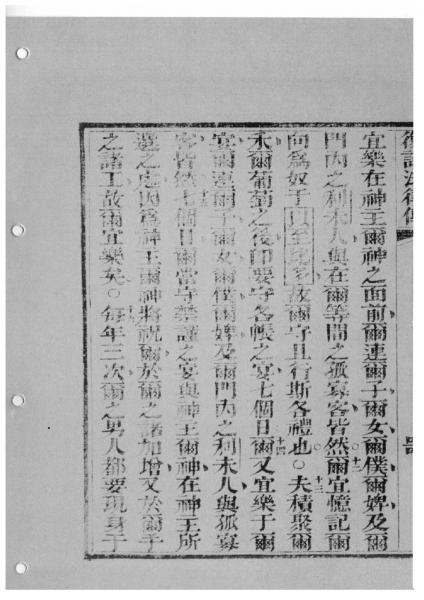 復講法律傳
宜樂在神王爾神之面前爾連爾子爾女爾僕爾婢及爾
門內之利未人與在爾等間之孤寡客皆然十二爾宜憶記爾
向爲奴于以至比多故爾守且行斯各禮也○十三夫積聚爾
禾爾葡萄之後即要守各帳之宴七個日十四爾又宜樂于爾
宴爾連爾子爾女爾僕爾婢及爾門內之利未人與孤寡
客皆然十五七個日爾當守禁謹之宴與神王爾神在神王所
選之處因爲神王爾神將祝爾於爾之諸加增又於爾手
之諸工故爾宜樂矣○十六每年三次爾之男人都要現身于